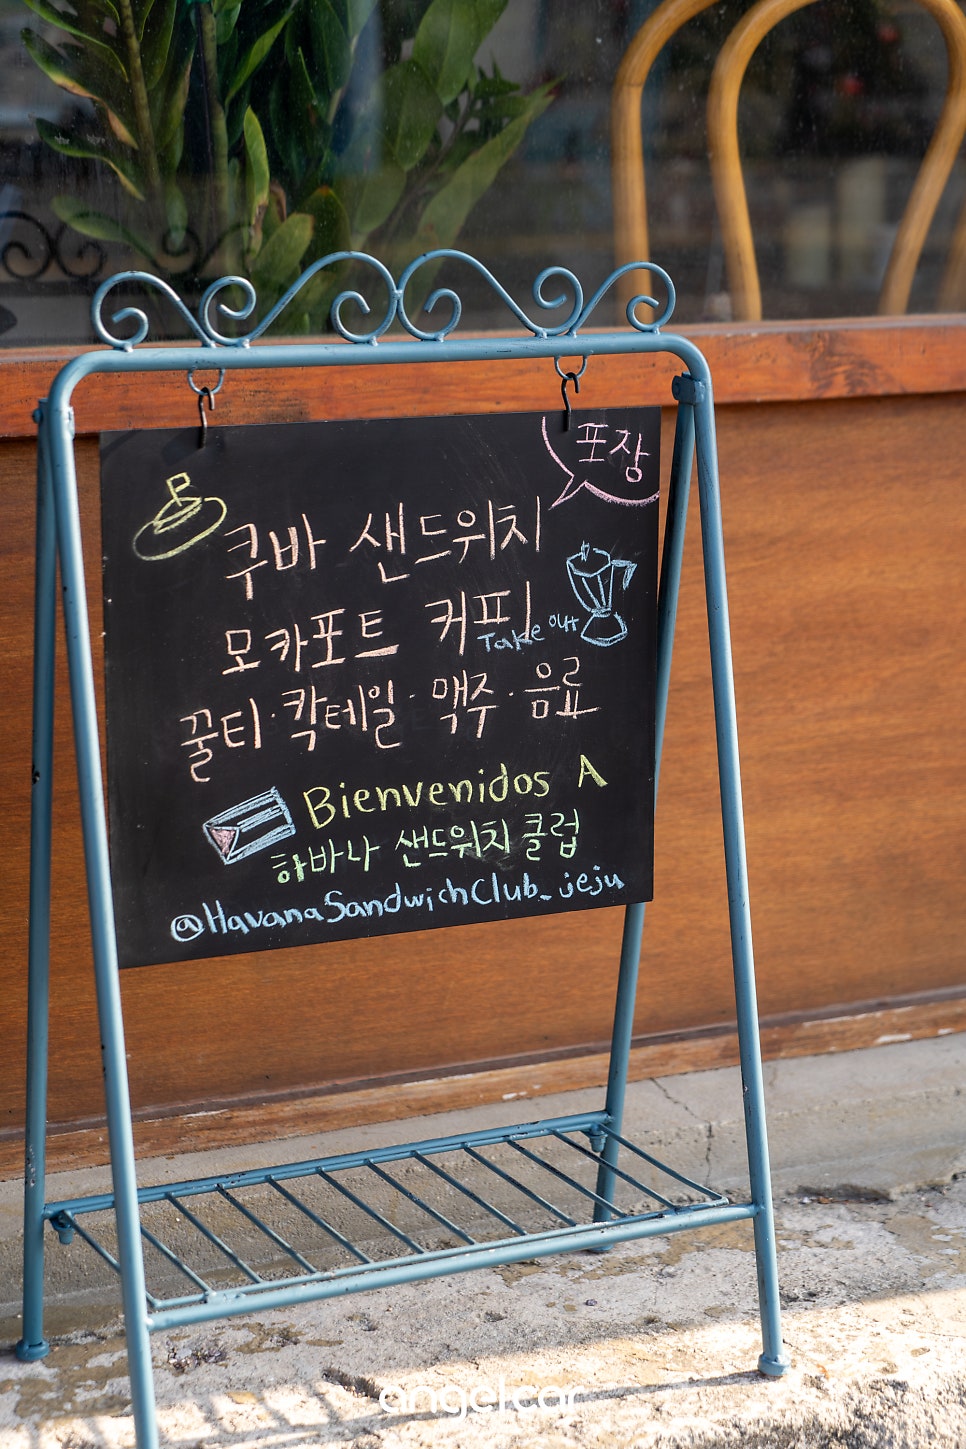 포장
쿠바 샌드위치
모카포트 커피
Take out
꿀티·칵테일·맥주·음료
Bienvenidos A
하바나 샌드위치 클럽
@HavanaSandwichClub_jeju
angelcar